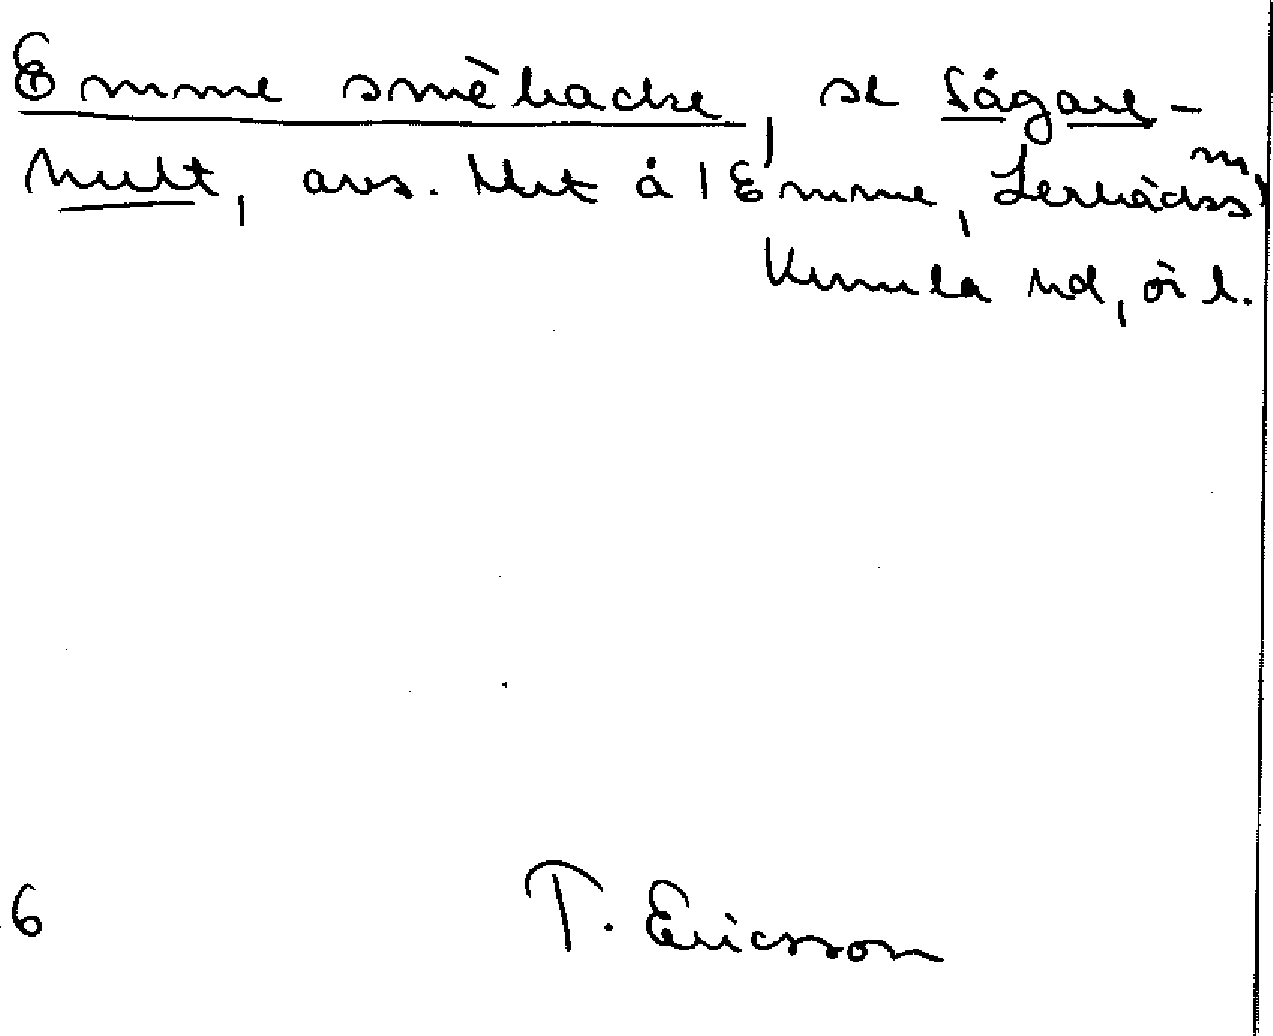 Emme smèbacke, se Sågare-
hult, avs. lht å 1 Emme, Lerbäcks sn,
Kumla hd, ör l.
6 T. Ericsson